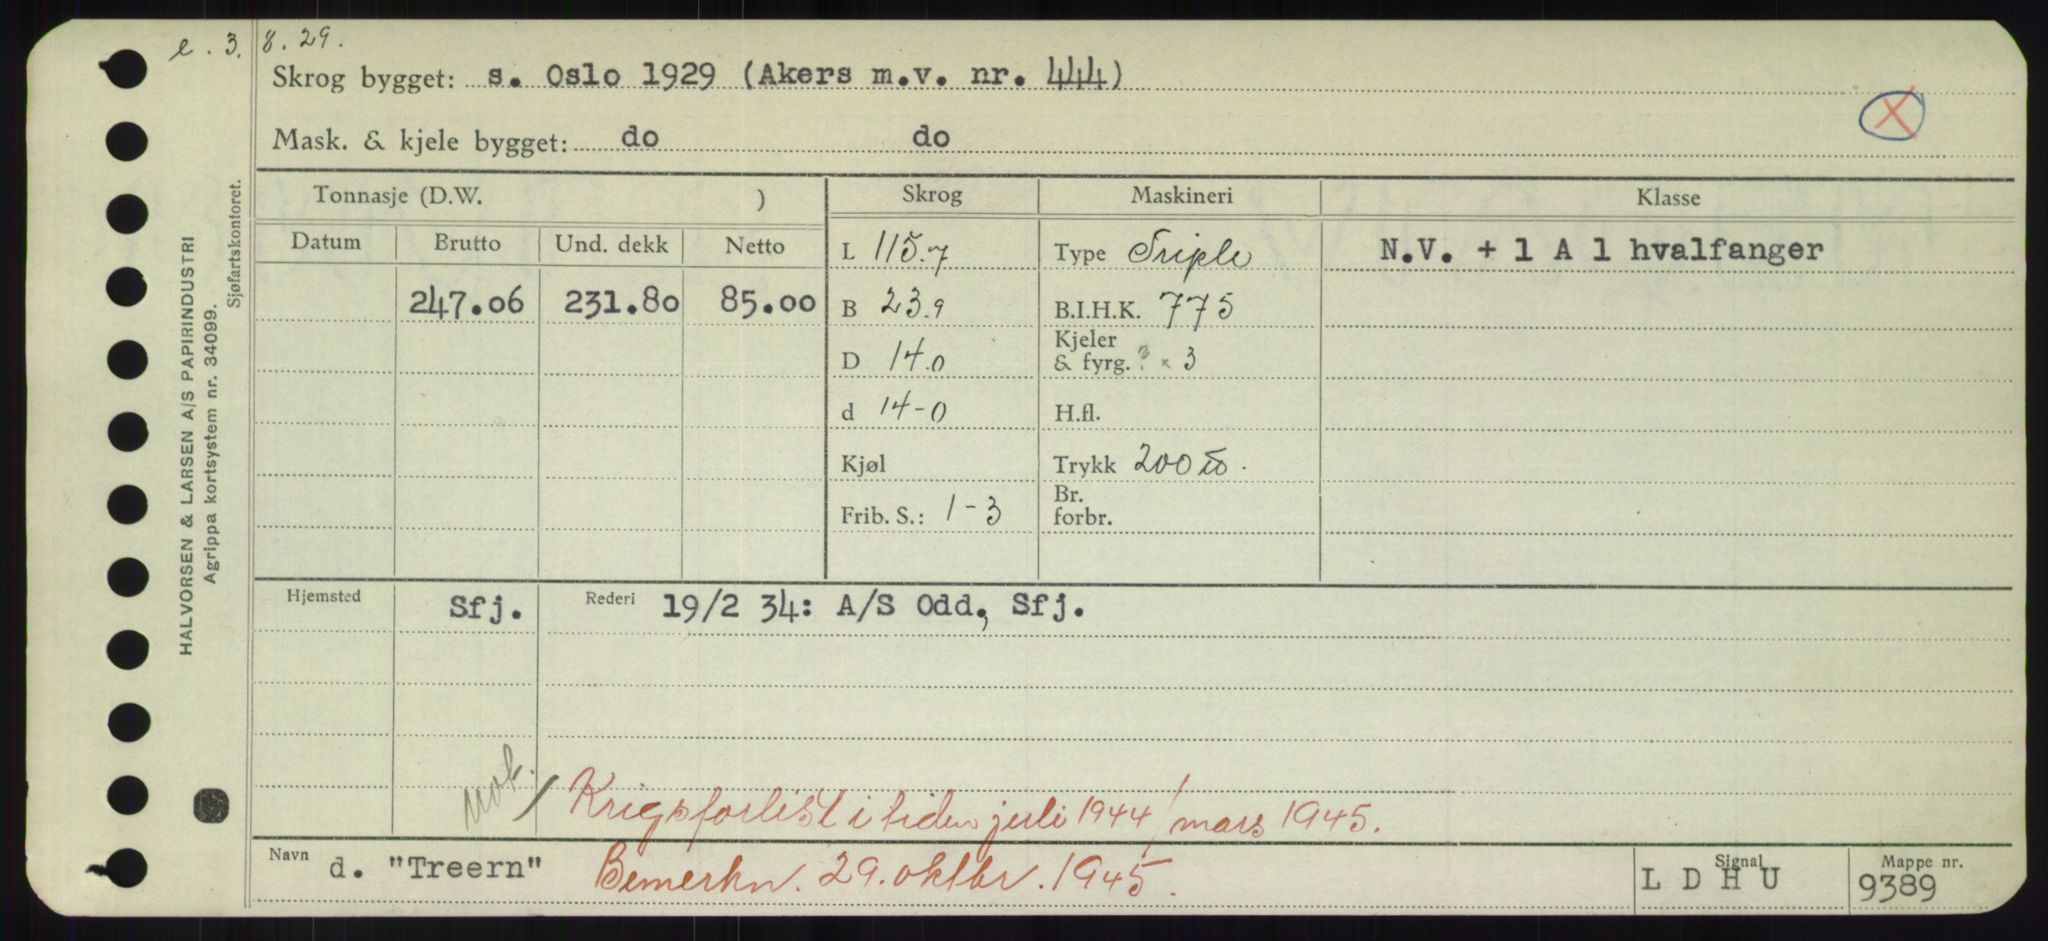 e. 3. 8. 29.
Skrog bygget: s. Oslo 1929 (Akers m.v. nr. 444)
Mask. & kjele bygget: do do
Tonnasje (D.W. ) Skrog Maskineri Klasse
Datum Brutto Und. dekk Netto L 115.7 Type Triple N.V. + 1 A 1 hvalfanger
247.06 231.80 85.00 B 23.9 B.I.H.K. 775
D 14.0 Kjeler & fyrg. ? × 3
d 14-0 H.fl.
Kjøl Trykk 200 lb.
Frib. S.: 1-3 Br. forbr.
Hjemsted Sfj. Rederi 19/2 34: A/S Odd, Sfj.
/ Krigsforlist i tiden juli 1944 / mars 1945.
Navn d. "Treern" Bemerkn. 29. oktbr. 1945. Signal L D H U Mappe nr. 9389
HALVORSEN & LARSEN A/S PAPIRINDUSTRI
Agrippa kortsystem nr. 34099.
Sjøfartskontoret.